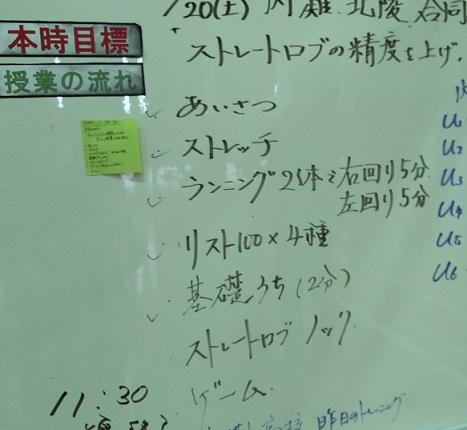 20(土) 北陵 合同
本時目標
ストレートロブの精度を上げ、
授業の流れ
あいさつ
ストレッチ
ランニング2体で右回り5分
左回り5分
リスト100×4種
基礎うち(2分)
ストレートロブ ノック
ゲーム
11:30
昨日のトレーニング
U1
U2
U3
U4
U5
U6